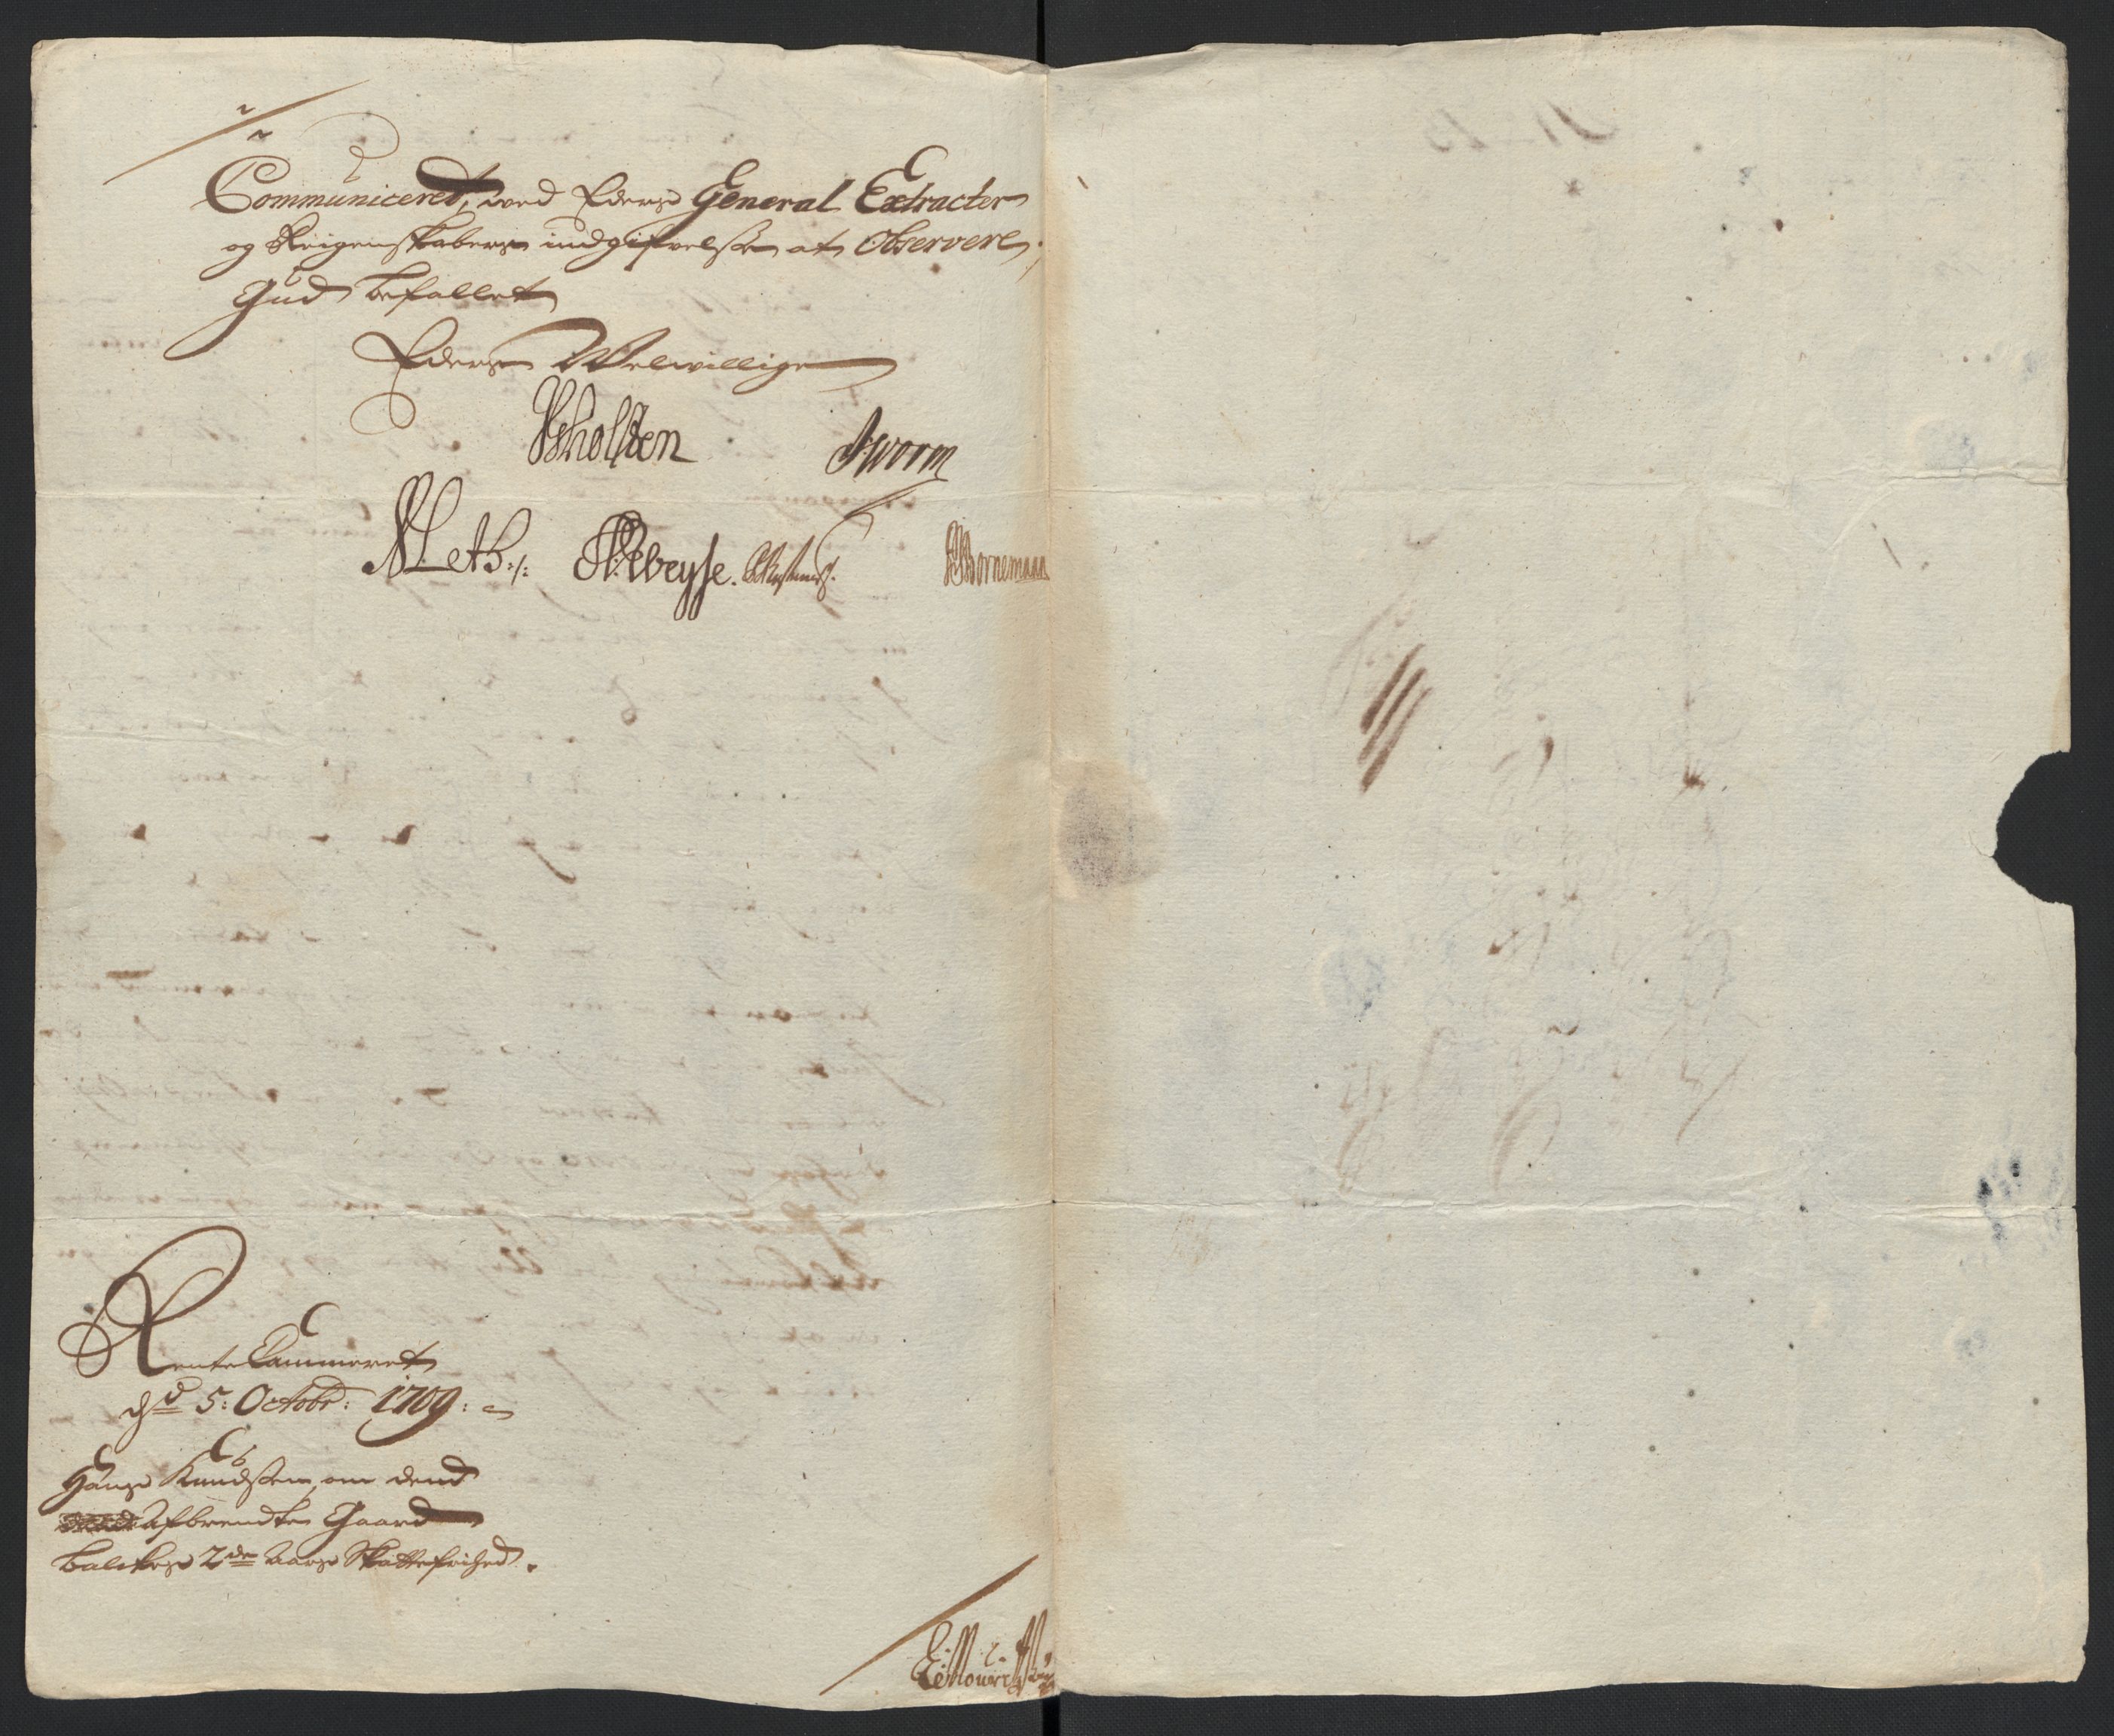 Communiceret, wed Eders General Extracter
og Reigenskabers indgifvelse at Observere,
Gud befallet
Eders Welwillige
JWorm
Meth:
Weyse.
Bornemann
RenteCammeret
d 5: Octobr: 1709:
Hans Knudsen, om dend
Afbrendte Gaard
2de Aars Skattefrihed.